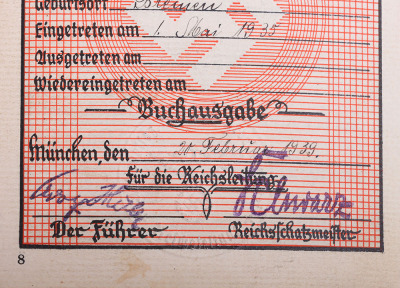 Geburtsort Bremen
Eingetreten am 1. Mai 1935
Ausgetreten am
Wiedereingetreten am
Buchausgabe
München, den 20. Februar 1939.
Für die Reichsleitung
Schwarz
Der Führer Reichsschatzmeister
8